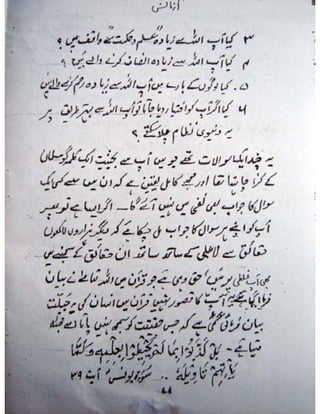 آزمائش
۳ کیا آپ اللہ سے زیادہ "علم و حکمت" سے واقف ہیں ؟
۴ کیا آپ اللہ سے زیادہ انصاف کرنے والے ہیں ؟
۵۔ کیا لوگوں کے بارے میں آپ اللہ سے زیادہ رحم کرنے والے ہیں
۶ کیا اگر آپ کو اختیار دیا جاتا تو آپ اللہ سے بہتر طریق پر
یہ دنیوی نظام چلا سکتے ؟
یہ چند ایک سوالات تھے جو میں آپ سے بحیثیت ایک کلمہ گو مسلمان
کے کرنا چاہتا تھا اور مجھے کامل یقین ہے کہ ان میں سے کسی ایک
سوال کا جواب بھی نفی میں نہیں آئے گا۔ اگر ایسا ہے تو پھر
آپ کو اپنے ہر سوال کا جواب مل چکا ہے کہ دیگر ہزاروں لاکھوں
حقائق سے لاعلمی کے ساتھ ساتھ ان حقائق کے سمجھنے میں
بھی آپ غلطی پر ہیں / حق وہی ہے جو قرآن میں اللہ تعالےٰ نے بیان
فرمایا آپ کا قصور نہیں قرآن میں انسان کی یہ جبلت
بیان فرمائی گئی ہے کہ جس حقیقت کو سمجھ نہیں پاتا اسے جھٹلا
دیتا ہے۔ بَلْ كَذَّبُوا بِمَا لَمْ يُحِيطُوا بِعِلْمِهِ وَلَمَّا
يَأْتِهِمْ تَأْوِيلُهُ ۔ سورۃ یونس آیت ۳۹